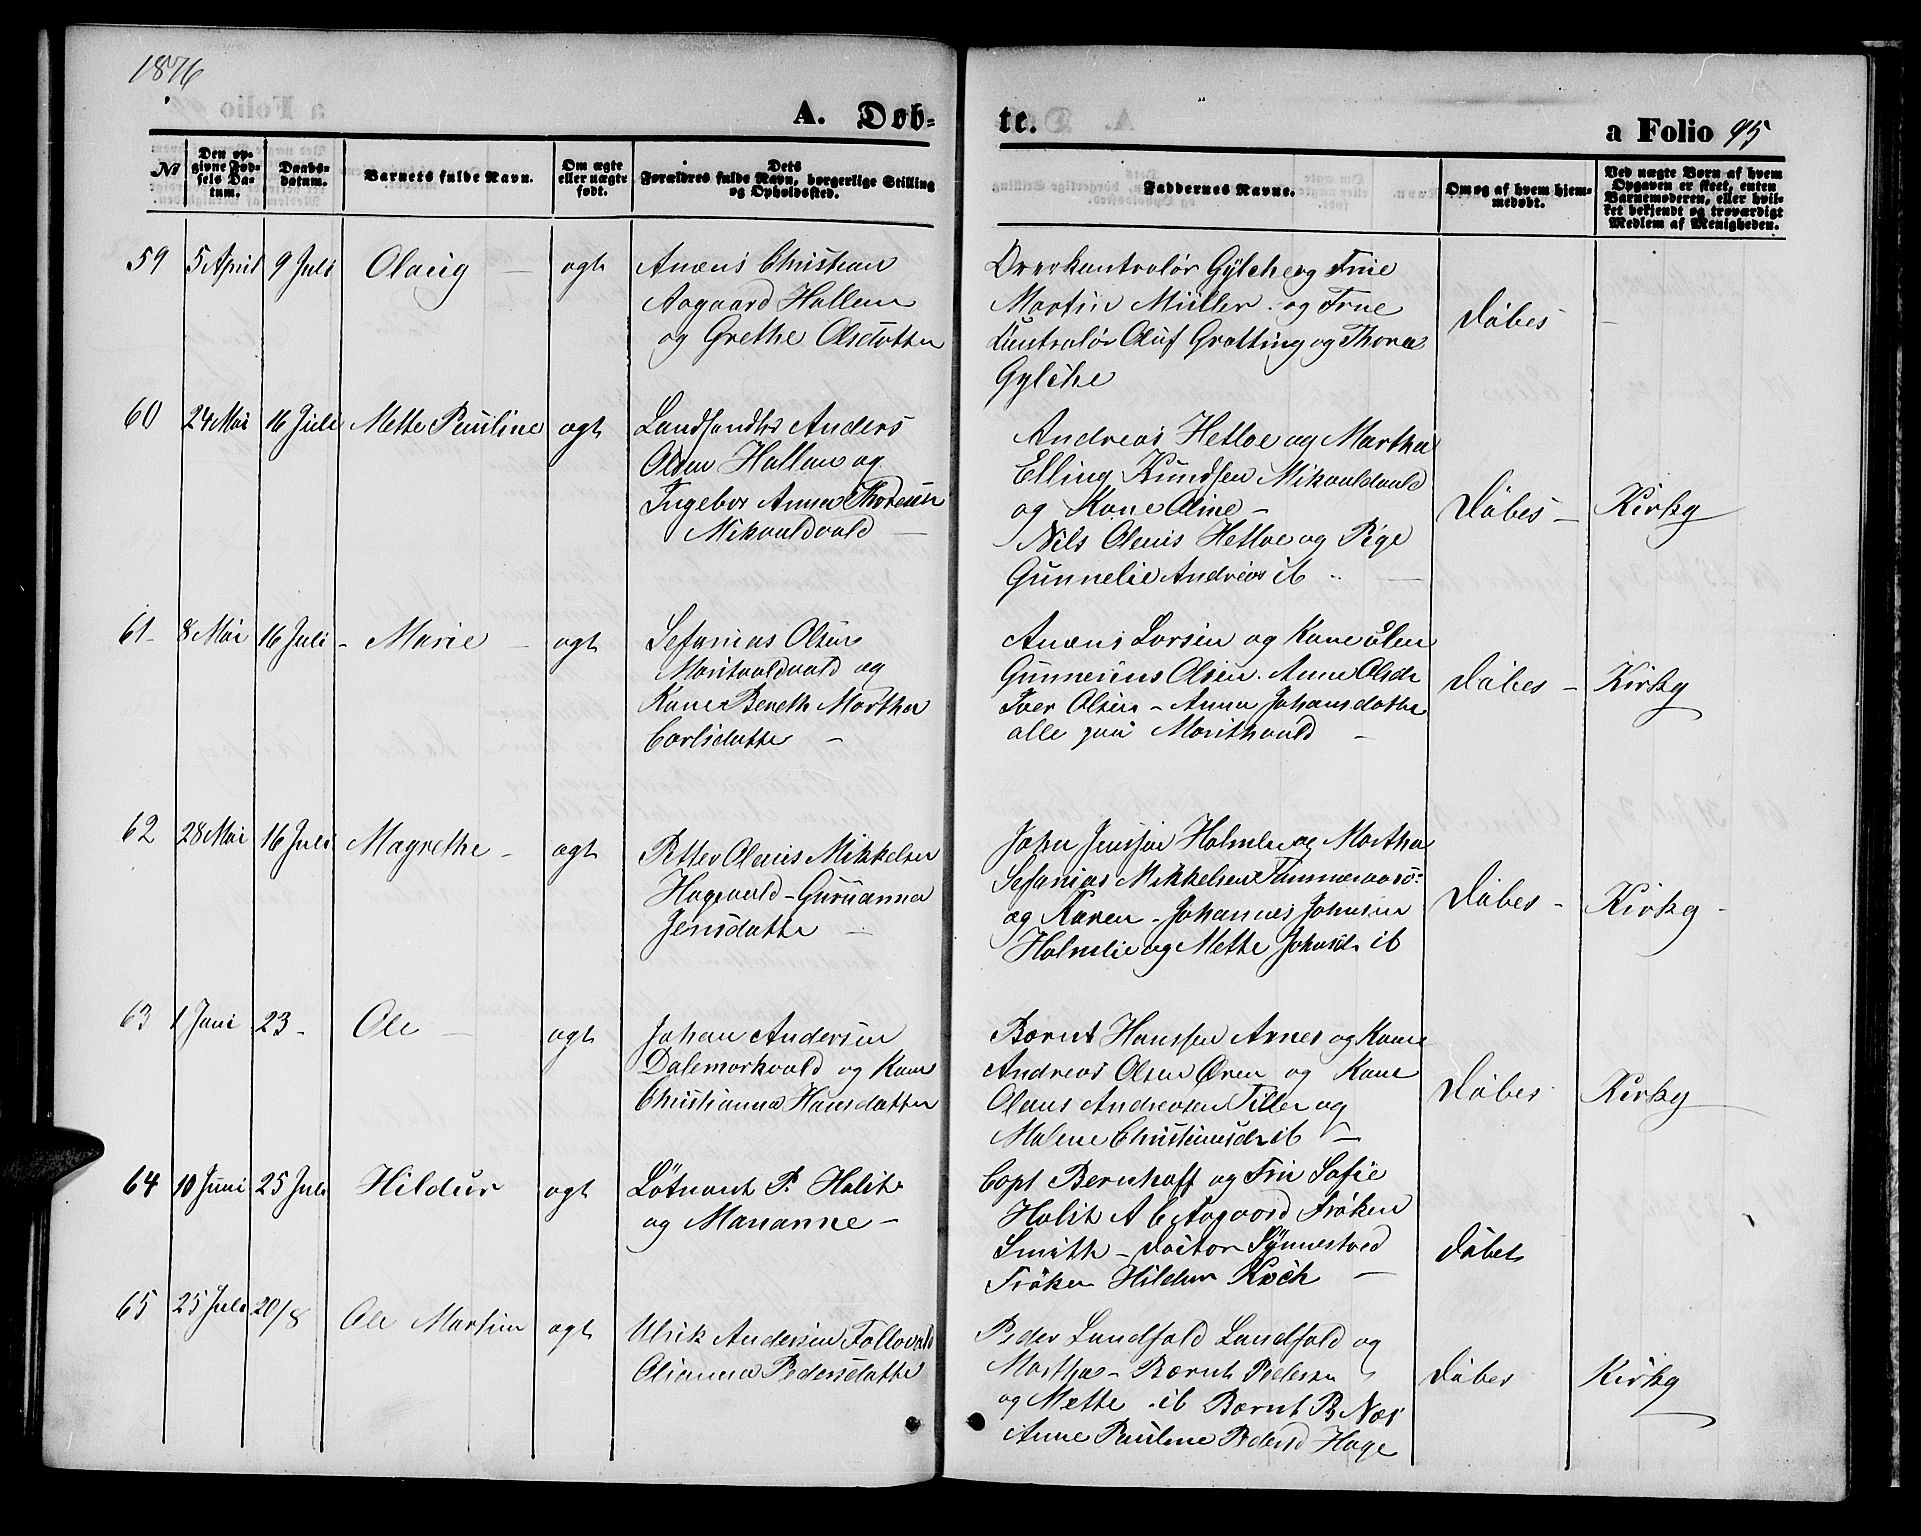 1876
A. Døb-
te.
a Folio 95
№
Den op-
givne Fød-
sels Da-
tum.
Daabs-
datum.
Barnets fulde Navn.
Om ægte
eller uægte
født.
Dets
Forældres fulde Navn, borgerlige Stilling
og Opholdssted.
Faddernes Navne.
Om og af hvem hjem-
medøbt.
Ved uægte Børn af hvem
Opgaven er skeet, enten
Barnemoderen, eller hvil-
ket bekjendt og troværdigt
Medlem af Menigheden.
59 5 April 9 Juli Olaug - ægt
Anæus Christian
Aagaard Hallem
og Grethe Olsdatter
Overkontrolør Gylche og Frue
Martin Müller og Frue
Kontrolør Oluf Grøtting og Thora
Gylche
Døbes -
60 24 Mai 16 Juli Mette Pauline ægt
Anders
Olsen Hallem og
Ingebor Anna Thoresen
Mikvoldvald -
Andreas Hetloe og Martha
Elling Knudsen Mikvoldvald
og Kone Oline -
Nils Olaus Hetloe og Pige
Gunnelie Andreas ib -
Døbes - Kirky
61- 8 Mai 16 Juli - Marie - ægt
Sefanias Olsen
Maritvoldvald og
Kone Bereth Martha
Carlsdatte -
Anæus Larsen og Kone Elen
Gunnerius Olsen. Anne Olsdr
Iver Olsen - Anna Johansdatte
alle paa Marithvald -
Døbes - Kirky
62 28 Mai 16 Juli Magrethe - ægt
Petter Olaus Mikkelsen
Hagevald - Guruanna
Jensdatte -
John Holmlie og Martha
Sefanias Mikkelsen
og Karen - Johannes Johnsen
Holmlie og Mette Johnsd. ib
Døbes - Kirky -
63 1 Juni 23 - Ole - ægt
Johan Andersen
Dalemarkvald og Kone
Christianna Hansdatter
Bernt Hanssen Arnes og Kone
Andreas Olsen Øren og Kone
Olaus Andreasen Tiller og
Malene Christiansdr ib -
Døbes Kirky
64 10 Juni 25 Juli Hildur ægt
Løtnant P. Holst
og Marianne -
Capt Bernhoft og Frü Sofie
Holst A C Aagaard Frøken
Smith - Doctor Synnestved
Frøken Hildur Koch -
Døbet
65 25 Juli 20/8 Ole Martin ægt
Ulrik Andersen Follovald
Olianna Pedersdatte
Peder Lundfald Landfald og
Martha - Bernt Pedersen
og Mette ib Bernt P. Næs
Anne Pauline Pedersd Hage
Døbes Kirky